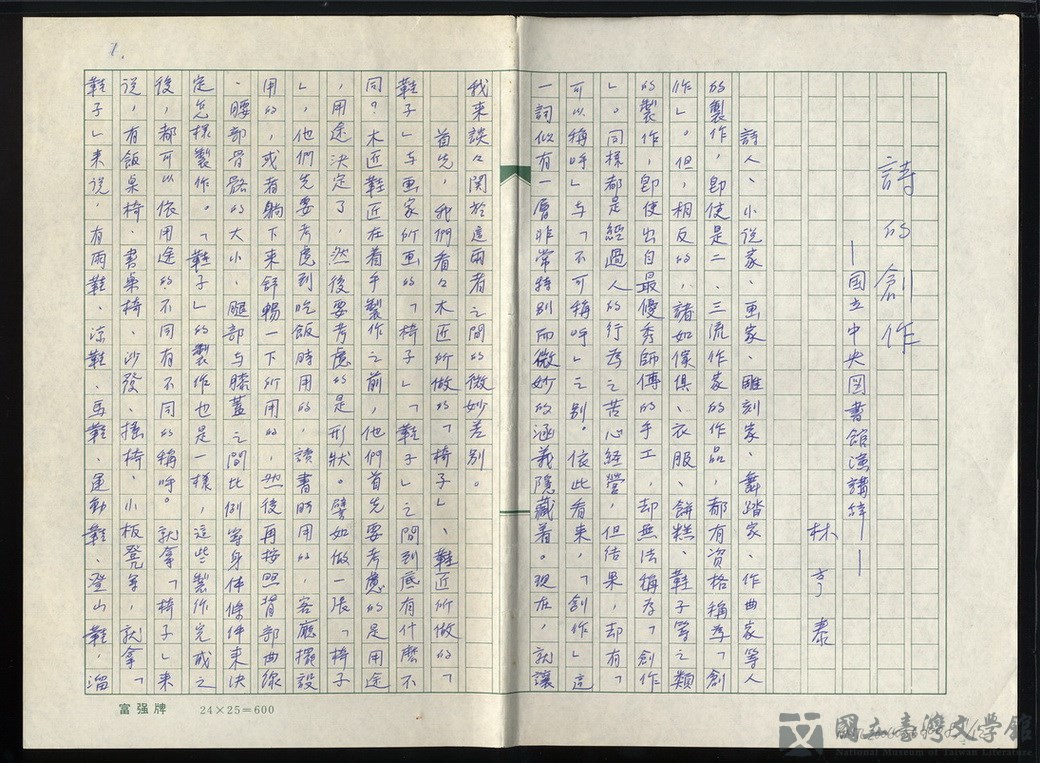 1.
詩的創作
—國立中央図書館演講稿——
林亨泰
詩人、小说家、画家、雕刻家、舞踏家、作曲家等人
的製作，即使是二、三流作家的作品，都有资格稱為「創
作」。但，相反的，諸如傢俱、衣服、餅糕、鞋子等之類
的製作，即使出自最優秀師傅的手工，却無法稱為「創作
」。同樣都是經過人的行為之苦心經營，但结果，却有「
可以稱呼」与「不可稱呼」之別。依此看来，「創作」這
一詞似有一層非常特別而微妙的涵義隱藏着。现在，就讓
我来談々関於這兩者之間的微妙差別。
首先，我們看々木匠所做的「椅子」、鞋匠所做的「
鞋子」与画家所画的「椅子」「鞋子」之間到底有什麼不
同？木匠鞋匠在着手製作之前，他們首先要考慮的是用途
，用途決定了，然後要考慮的是形狀。譬如做一張「椅子
」，他們先要考慮到吃飯時用的，讀書時用的，客廳擺設
用的，或者躺下来舒暢一下所用的，然後再按照背部曲線
、腰部骨骼的大小、腿部与膝蓋之間比例等身体條件来決
定怎樣製作。「鞋子」的製作也是一樣，這些製作完成之
後，都可以依用途的不同有不同的稱呼。就拿「椅子」来
说，有飯桌椅、書桌椅、沙發、搖椅、小板凳等，就拿「
鞋子」来说，有雨鞋、涼鞋、馬鞋、運動鞋、登山鞋，溜
富强牌 24×25=600
國立臺灣文學館
National Museum of Taiwan Literature